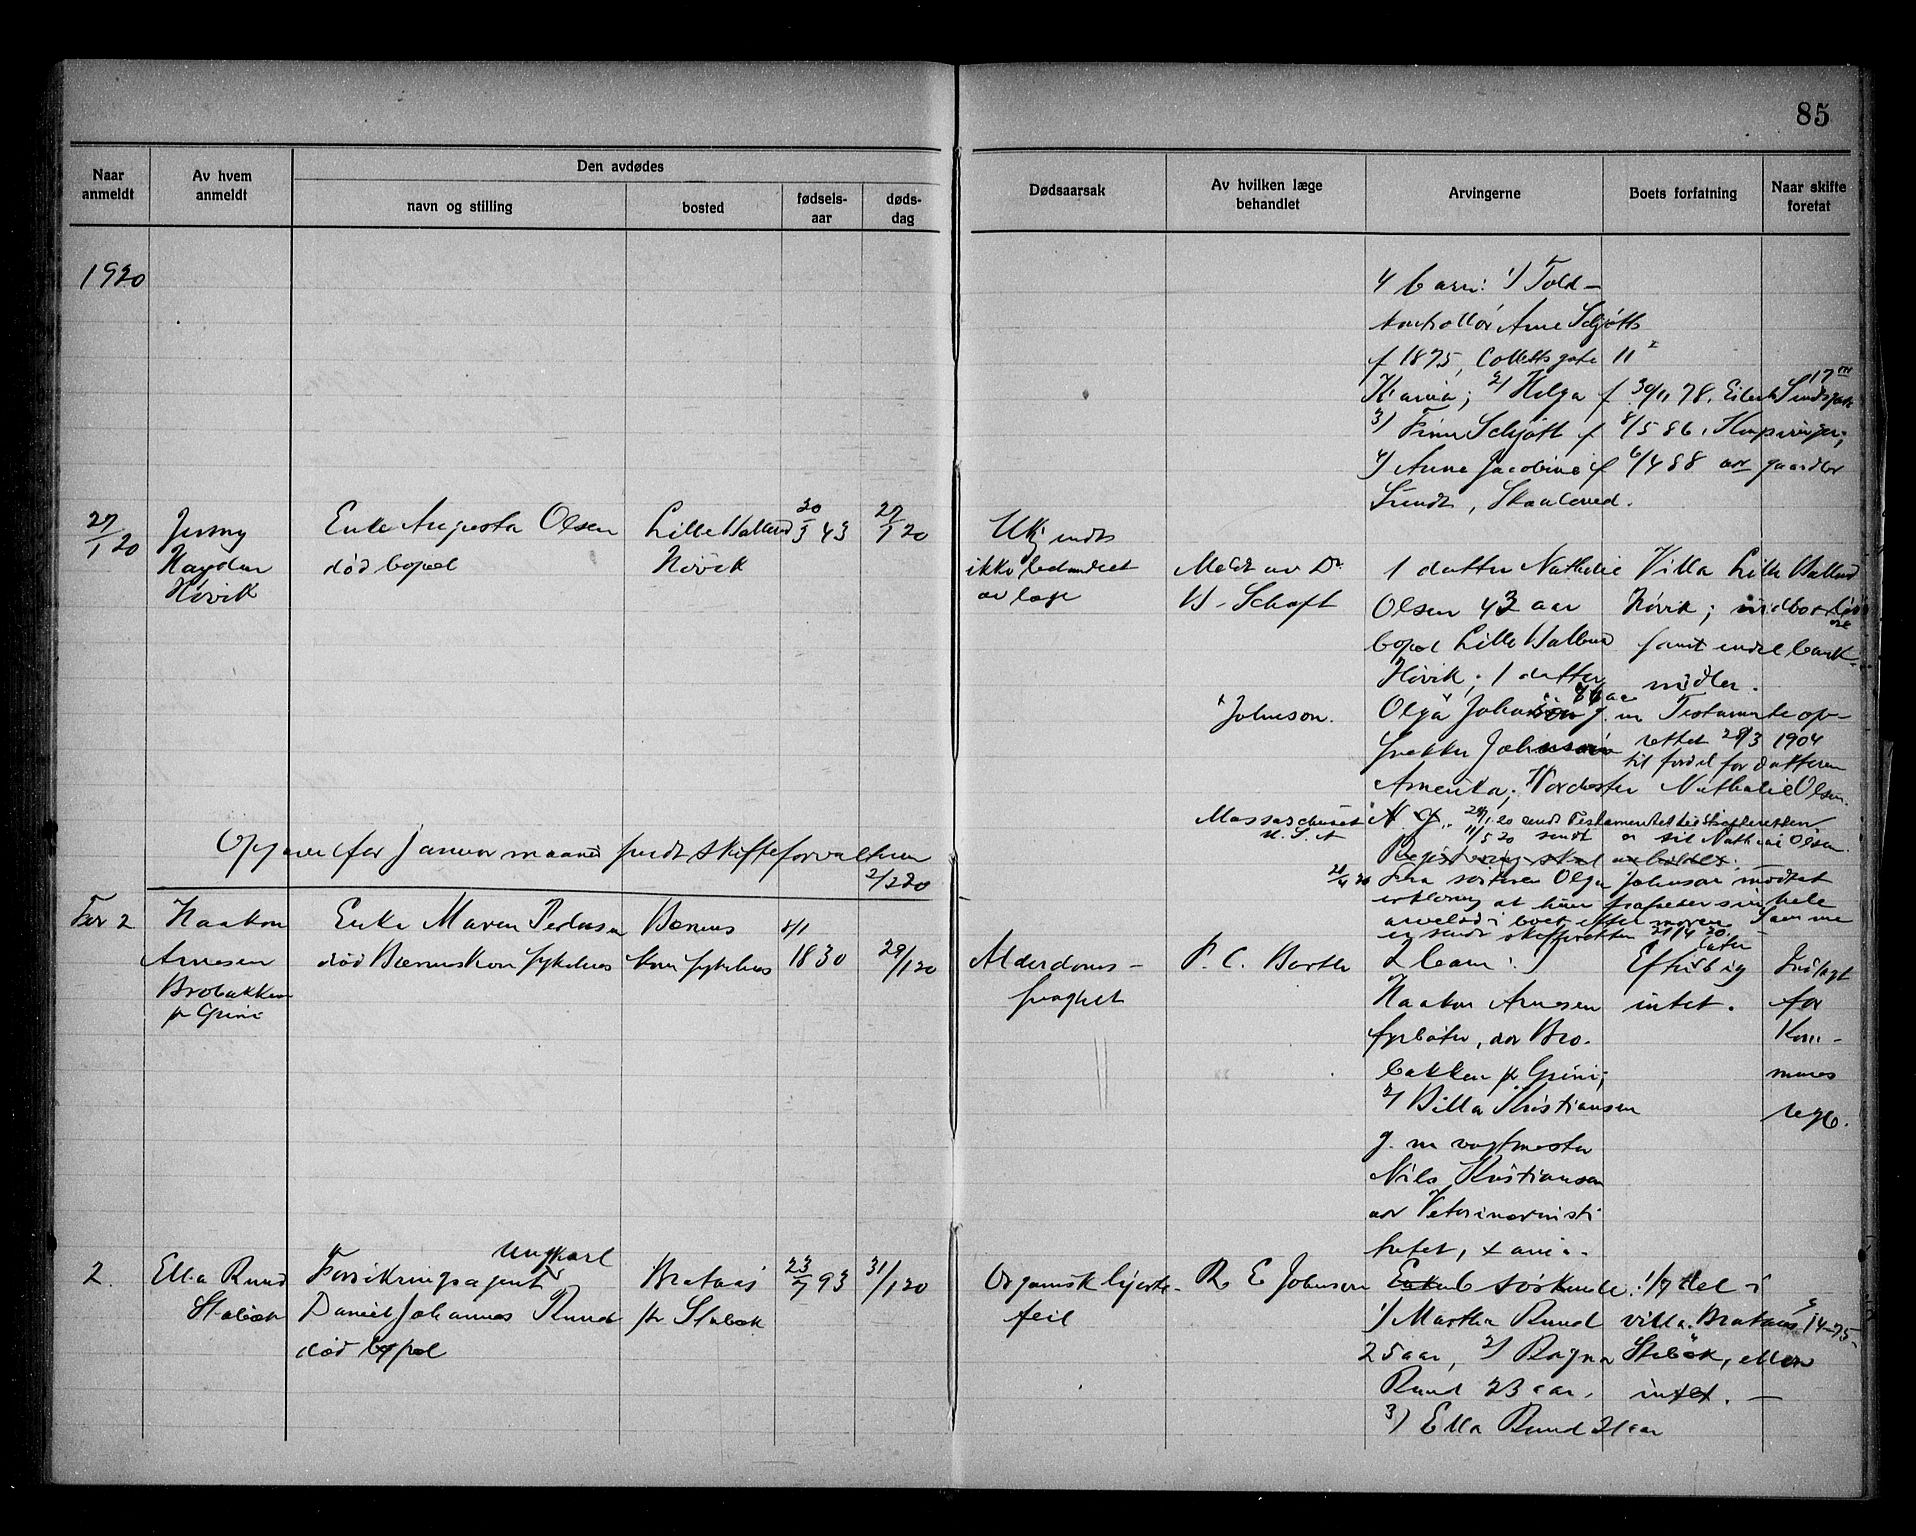 85
Naar anmeldt
Av hvem anmeldt
Den avdødes
navn og stilling
bosted
fødselsaar
dødsdag
Dødsaarsak
Av hvilken læge behandlet
Arvingerne
Boets forfatning
Naar skifte foretat
1920
4 barn: 1) Told-
kontrollör Arne Schjøtt
f 1875, Colletts gate 11
Kr.ania; 2) Helga f 30/11 78, Eilert Sundtsgate
3) Finn Schjøtt f 8/5 86,
4) Anna Jacobine f 6/4 88 adr gaardbr
Sundt, Skaalerud.
27/1 20
Jenny
Haydn
Høvik
Enke Augusta Olsen
død bopæl
Lille Valland
Høvik
20/3 43
27/1 20
Ukjendt
ikke behandlet
av læge
Meldt av Dr.
W. Schaft
1 datter Nathalie
Olsen 43 aar
bopæl Lille Valland
Høvik; 1 datter
Olga Johnson g. m
Johnson.
snekker Johnson
Amerika, Worchester
Massaschuset
U. S. A
Villa Lille Valland
Høvik; indbo
samt endel bank-
midler.
Testamente op-
rettet 28/3 1904
til fordel for datteren
Nathalie Olsen.
29/1 20 sendt Testamentet til skifteretten
11/5 20 sendt til Nathalie Olsen.
Registrering skal anholdes.
21/4 20 Fra søsteren Olga Johnson modtat
erklæring at hun frafalder sin hele
arvelod i boet efter moren. Samme
sendt skifteretten 21/4 20.
Opgave for Januar maaned sendt skifteforvalteren
2/2 20
Febr 2
Haakon
Arnesen
Brobakken
pr Grini
Enke Maren Pedersen
død Bærums kom sykehus
Bærums
kom sykehus
8/1
1830
29/1 20
Alderdoms-
svaghet
P. C. Barth
2 barn:
Haakon Arnesen
fyrbøter, adr Bro-
bakken pr Grini;
2) Billa Kristiansen
g. m vogtmester
Nils Kristiansen
adr Veterinærinsti
tutet, Xania.
Efterlater
sig
intet.
Indlagt
for
Kom-
munes
regn.
2.
Ella Ruud
Stabæk
Forsikringsagent Ungkarl
Daniel Johannes Ruud
død bopæl
Brataas
pr Stabæk
23/7 93
31/1 20
Organisk hjerte-
feil
R E Johnson
Enke søskende:
1) Martha Ruud
25 aar, 2) Ragna
Ruud 23 aar.
3) Ella Ruud 21 aar
1/7 del i
villa Brataas
Stabæk, ellers
intet. —